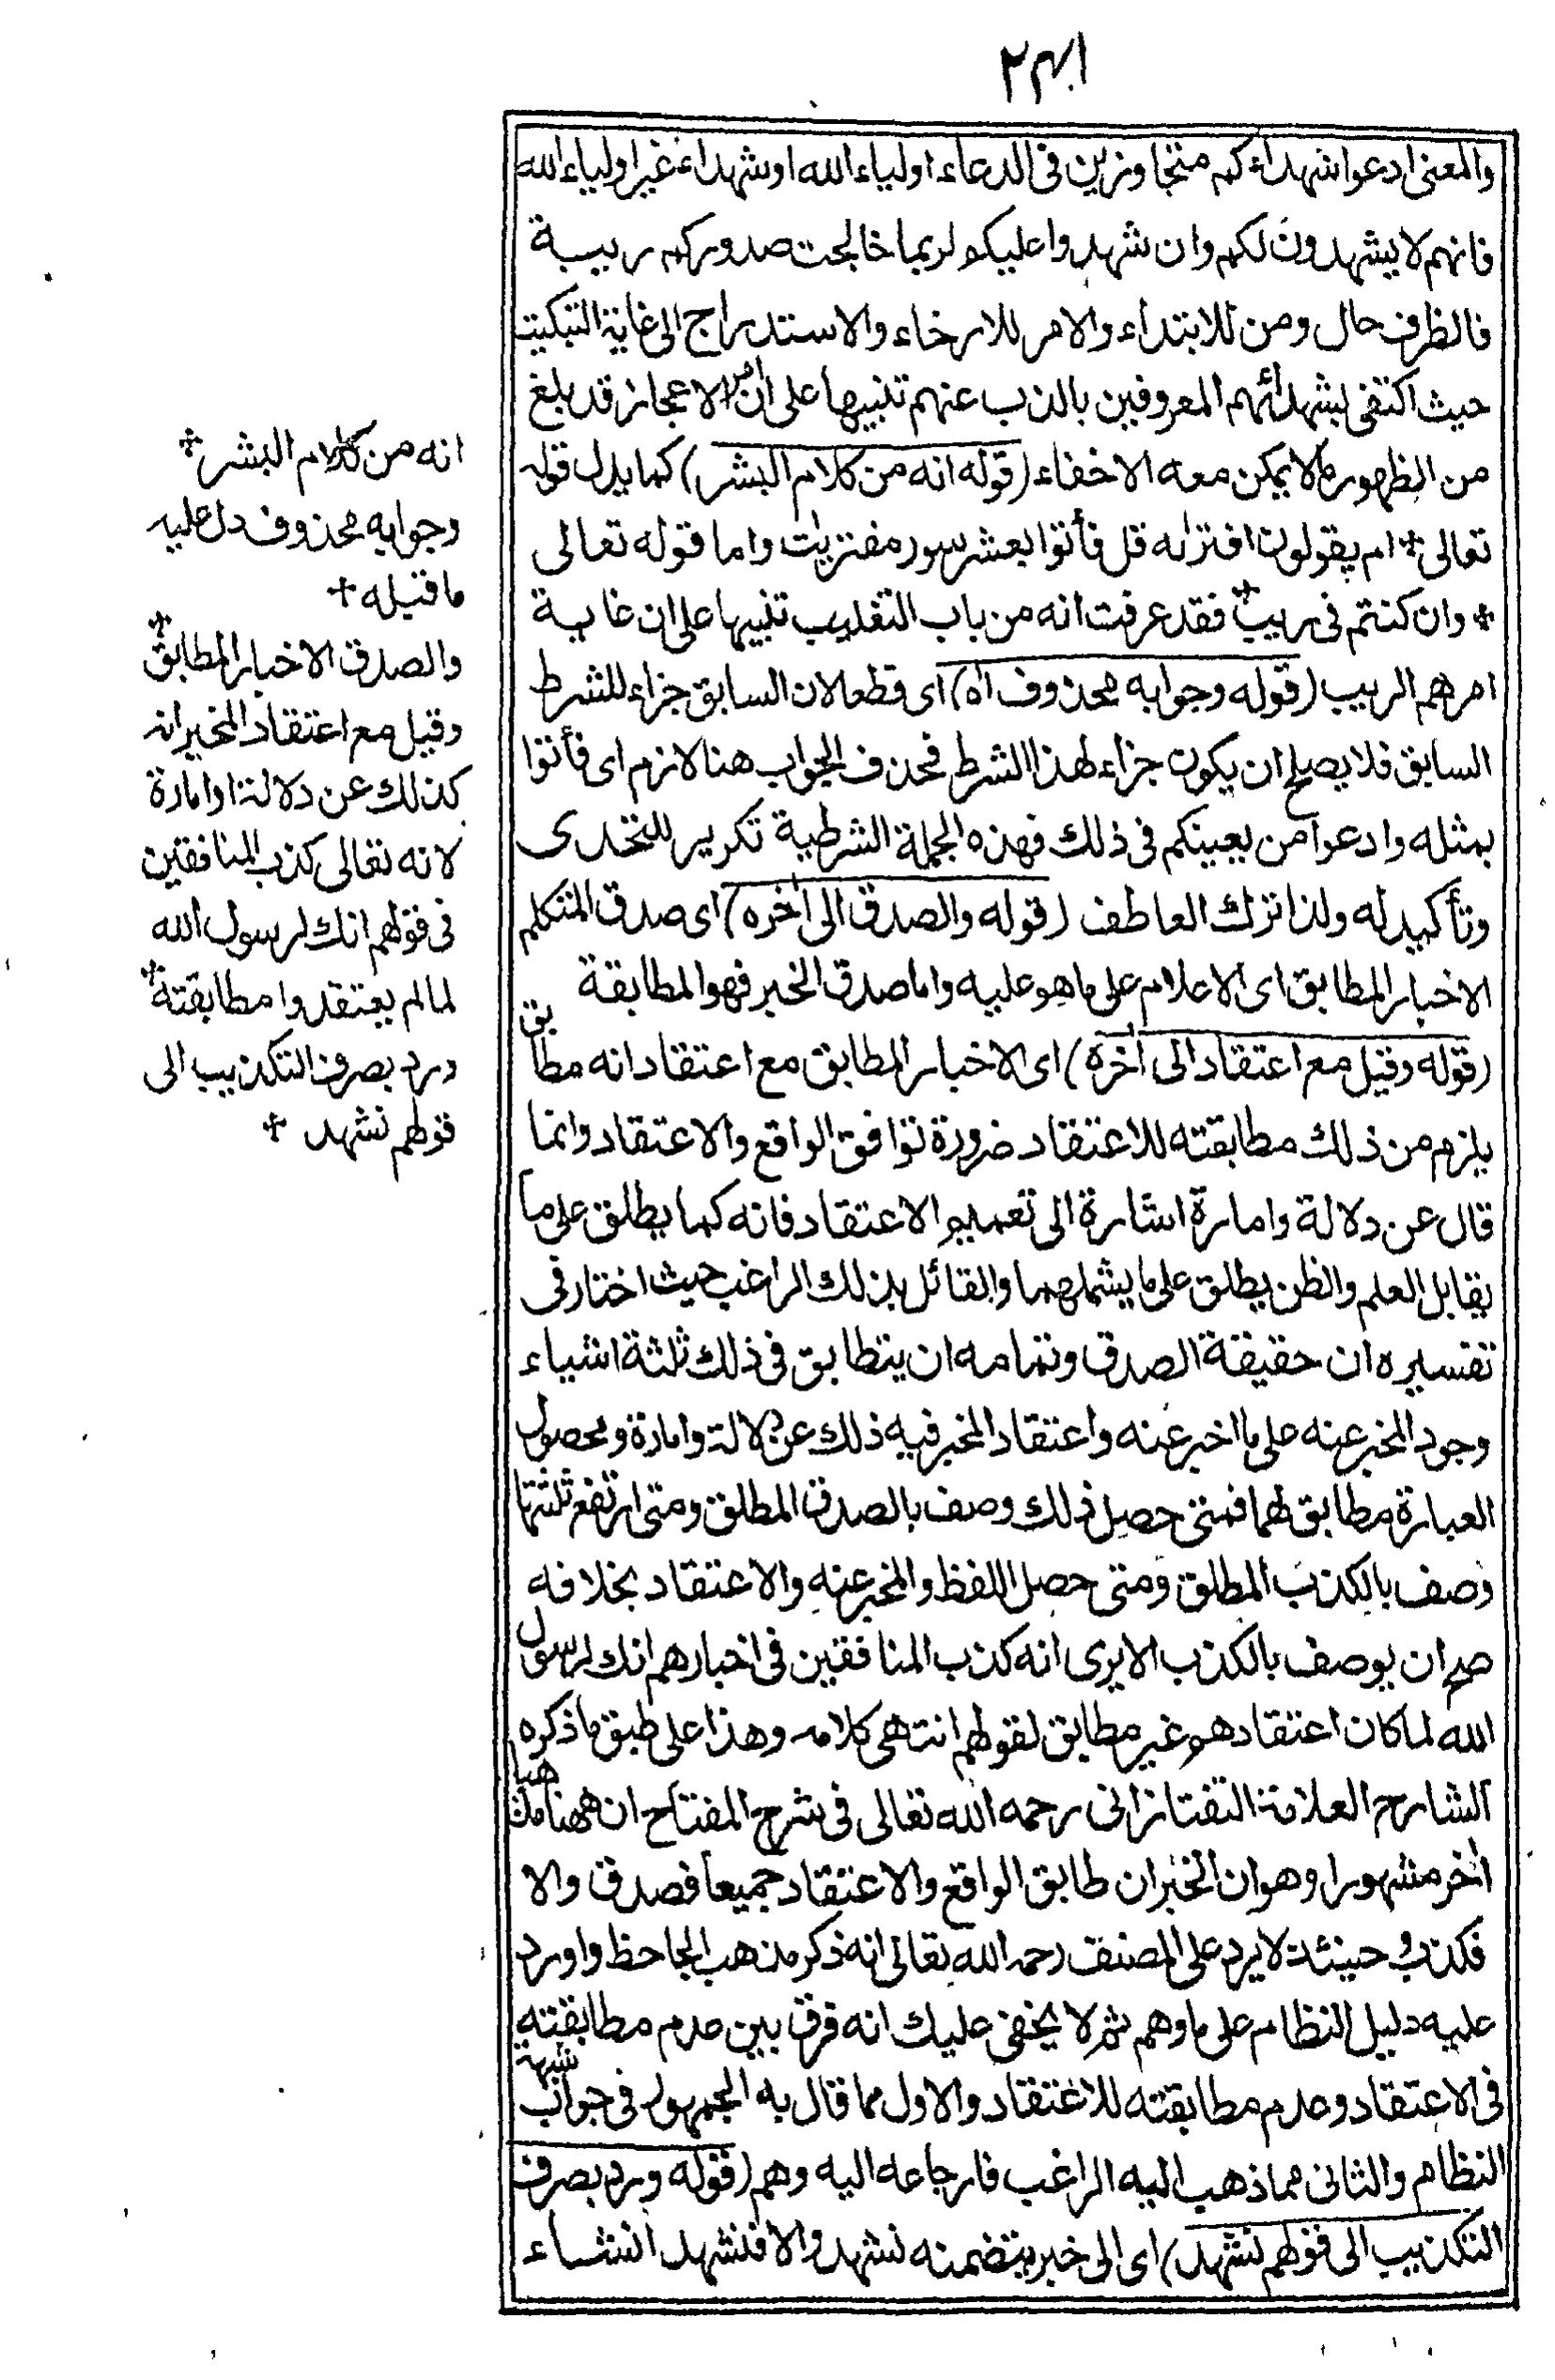 والمعنى ادعوا شهداء كم متجاوزين فى الدعاء اولياء الله او شهداء غير اولياء الله
فانهم لا يشهدون لكم وان شهدوا عليكم لربما خالجت صدوركم ريبة
فالظرف حال ومن للابتداء والامر للارخاء والاستدراج الى غاية التبكيت
حيث اكتفى بشهدائهم المعروفين بالذب عنهم تنبيها على ان امر الاعجاز قد بلغ
من الظهور ما لا يمكن معه الاخفاء (قوله انه من كلام البشر) كما يدل قوله
تعالى + ام يقولون افتراه قل فأتوا بعشر سور مفتريات واما قوله تعالى
+ وان كنتم فى ريب + فقد عرفت انه من باب التغليب تنبيها على ان غاية
امرهم الريب (قوله وجوابه محذوف اه) اى قطعا لان السابق جزاء للشرط
السابق فلا يصلح ان يكون جزاء لهذا الشرط فحذف الجواب هنا لازم اى فأتوا
بمثله وادعوا من يعينكم فى ذلك فهذه الجملة الشرطية تكرير للتحدى
وتأكيد له ولذا ترك العاطف (قوله والصدق الى آخره) اى صدق المتكلم
الاخبار المطابق اى الاعلام على ما هو عليه واما صدق الخبر فهو المطابقة
(قوله وقيل مع اعتقاد الى آخره) اى الاخبار المطابق مع اعتقاد انه مطابق
يلزم من ذلك مطابقته للاعتقاد ضرورة توافق الواقع والاعتقاد وانما
قال عن دلالة وامارة اشارة الى تعميم الاعتقاد فانه كما يطلق على ما
يقابل العلم والظن يطلق على ما يشملهما والقائل بذلك الراغب حيث اختار فى
تفسيره ان حقيقة الصدق وتمامه ان يتطابق فى ذلك ثلثة اشياء
وجود المخبر عنه على ما اخبر عنه واعتقاد المخبر فيه ذلك عن دلالة وامارة وحصول
العبارة مطابق لهما فمتى حصل ذلك وصف بالصدق المطلق ومتى ارتفع ثلثتها
وصف بالكذب المطلق ومتى حصل اللفظ والمخبر عنه والاعتقاد بخلافه
صح ان يوصف بالكذب الا يرى انه كذب المنافقين فى اخبارهم انك لرسول
الله لما كان اعتقادهم غير مطابق لقولهم انتهى كلامه وهذا على طبق ما ذكره
الشارح العلامة التفتازانى رحمه الله تعالى فى شرح المفتاح ان ههنا مذهبا
آخر مشهورا وهو ان الخبر ان طابق الواقع والاعتقاد جميعا فصدق والا
فكذب وحينئذ لا يرد على المصنف رحمه الله تعالى انه ذكر مذهب الجاحظ واورد
عليه دليل النظام على ما وهم ثم لا يخفى عليك انه فرق بين عدم مطابقته
فى الاعتقاد وعدم مطابقته للاعتقاد والاول مما قال به الجمهور فى جواب شبهة
النظام والثانى مما ذهب اليه الراغب فارجاعه اليه وهم (قوله ورد بصرف
التكذيب الى قولهم نشهد) اى الى خبر يتضمنه نشهد والا فنشهد انشاء
انه من كلام البشر +
وجوابه محذوف دل عليه
ما قبله +
والصدق الاخبار المطابق +
وقيل مع اعتقاد المخبر انه
كذلك عن دلالة او امارة
لانه تعالى كذب المنافقين
فى قولهم انك لرسول الله
لما لم يعتقدوا مطابقته +
ورد بصرف التكذيب الى
قولهم نشهد +